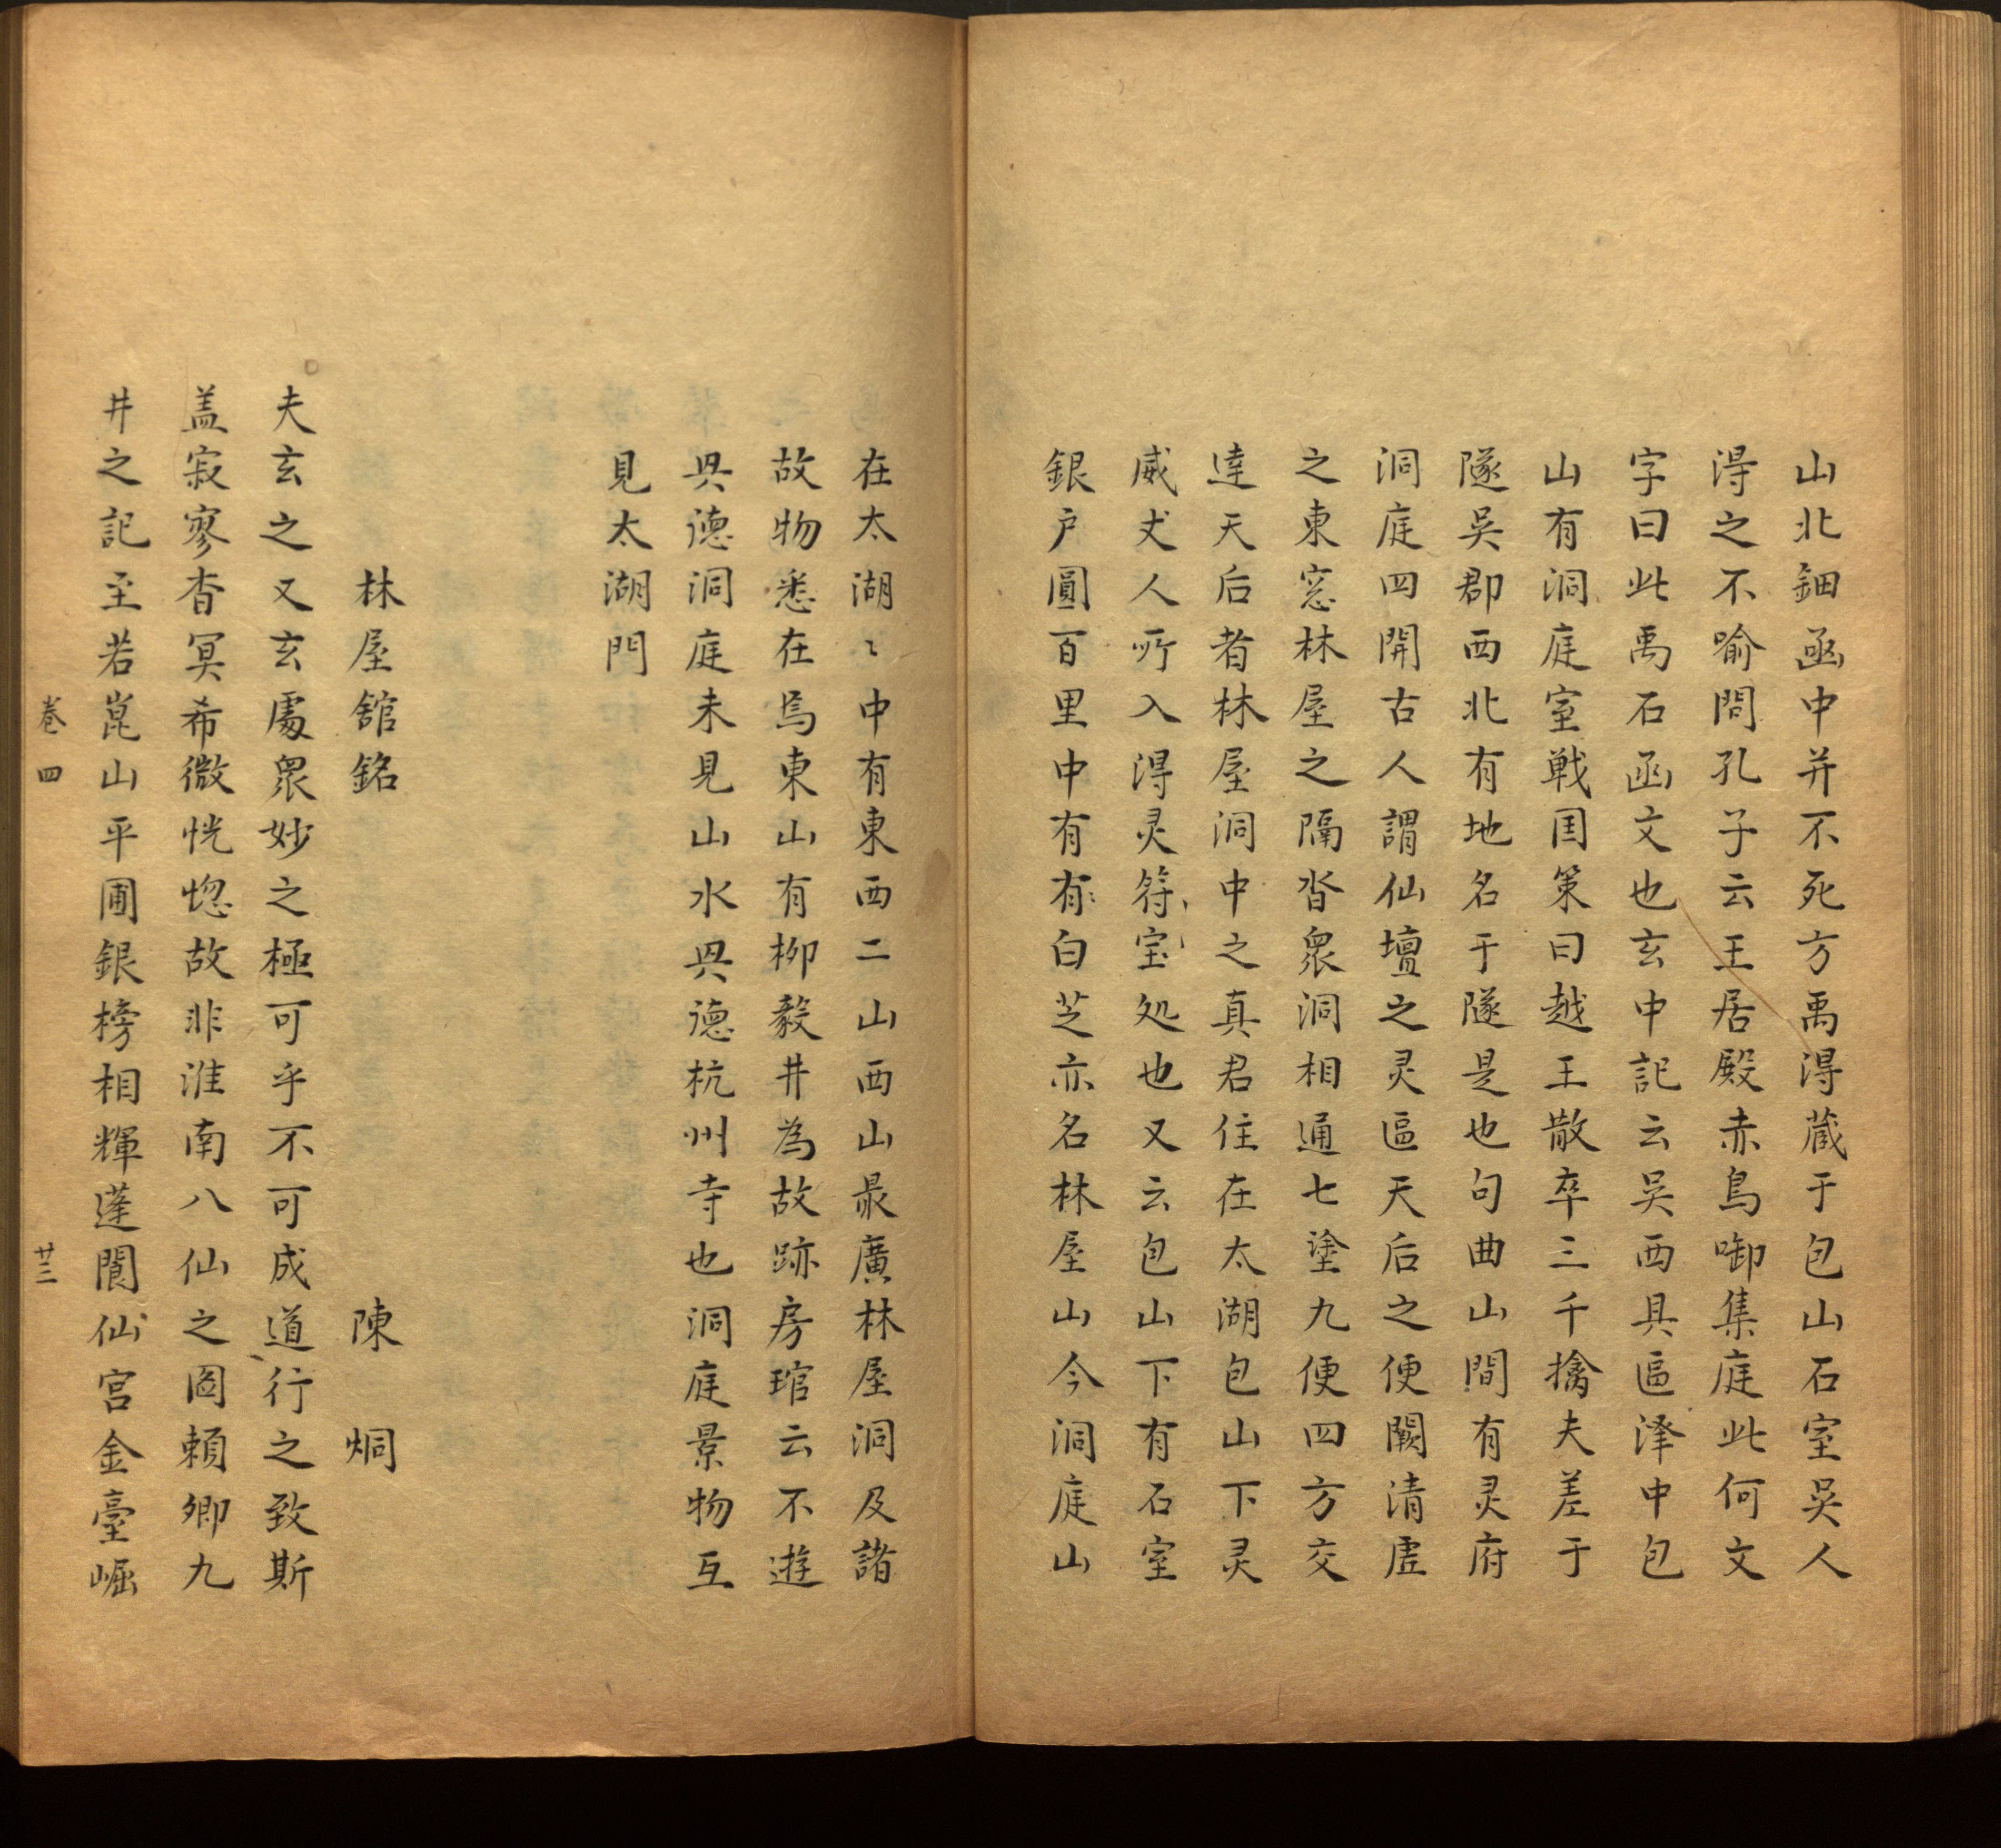 山北鈿凾中并不死方禹淂蔵于包山石室吴人
淂之不喻問孔子云王居殿赤鳥啣集庭此何文
字曰此禹石凾文也玄中記云吴西具區泽中包
山有洞庭室戦国策曰越王散卒三千擒夫差于
隧吴郡西北有地名于隧是也句曲山間有灵府
洞庭四開古人謂仙壇之灵區天后之便闕清虚
之東窓林屋之隔沓衆洞相通七塗九便四方交
逹天后者林屋洞中之真君住在太湖包山下灵
威丈人所入淂灵符宝处也又云包山下有石室
銀户圓百里中有有白芝亦名林屋山今洞庭山
在太湖〻中有東西二山西山最廣林屋洞及諸
故物悉在焉東山有柳毅井為故跡房琯云不遊
興德洞庭未見山水興德杭州寺也洞庭景物互
見太湖門
林屋舘銘　陳　烱
夫玄之又玄處衆妙之極可乎不可成道行之致斯
盖寂寥杳冥希微恍惚故非淮南八仙之圖頼卿九
井之記至若崑山平圃銀榜相輝蓬閬仙宫金臺崛
卷四　廿三